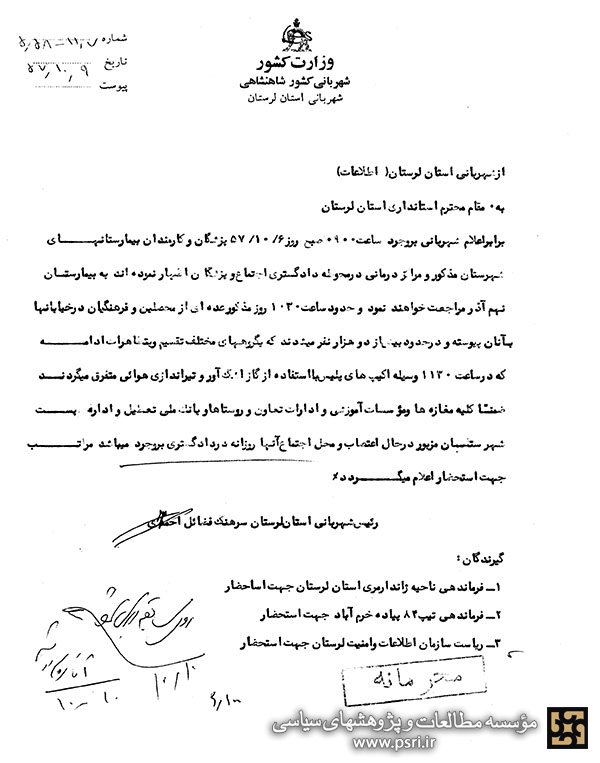 وزارت کشور
شهربانی کشور شاهنشاهی
شهربانی استان لرستان
شماره
تاریخ ۵۷/۱۰/۹
پیوست
از شهربانی استان لرستان (اطلاعات)
به مقام محترم استانداری استان لرستان
برابر اعلام شهربانی بروجرد ساعت ۰۹۰۰ صبح روز ۵۷/۱۰/۶ پزشگان و کارمندان بیمارستانهای
شهرستان مذکور و مراکز درمانی در محوطه دادگستری اجتماع و پزشگان اظهار نموده اند به بیمارستان
نهم آذر مراجعت خواهند نمود و حدود ساعت ۱۰۳۰ روز مذکور عده ای از محصلین و فرهنگیان در خیابانها
بآنان پیوسته و در حدود بیش از دو هزار نفر میشدند که بگروههای مختلف تقسیم وبتظاهرات ادامه
که در ساعت ۱۱۳۰ وسیله اکیپ های پلیس با استفاده از گاز اشک آور و تیراندازی هوائی متفرق میگردند
ضمنا کلیه مغازه ها و مؤسسات آموزشی و ادارات تعاون و روستاها و بانک ملی تعطیل و اداره پست
شهرستان مزبور در حال اعتصاب و محل اجتماع آنها روزانه در دادگستری بروجرد میباشد مراتب
جهت استحضار اعلام میگردد٪
رئیس شهربانی استان لرستان سرهنگ فضائل احمدی
گیرندگان :
۱ــ فرماندهی ناحیه ژاندارمری استان لرستان جهت استحضار
۲ــ فرماندهی تیپ ۸۴ پیاده خرم آباد جهت استحضار
۳ــ ریاست سازمان اطلاعات و امنیت لرستان جهت استحضار
محرمانه
مؤسسه مطالعات و پژوهشهای سیاسی
www.psri.ir